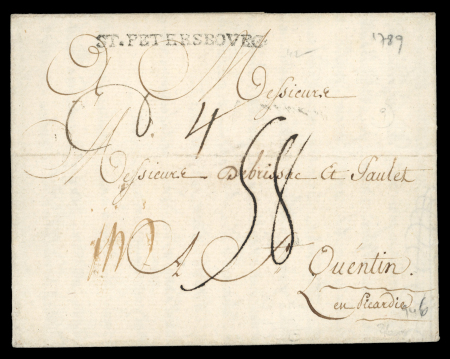 ST.PETERSBOURG
1789
A Messieurs
4
Messieurs Debrissac et Paulet
58
A St Quentin.
en Picardie